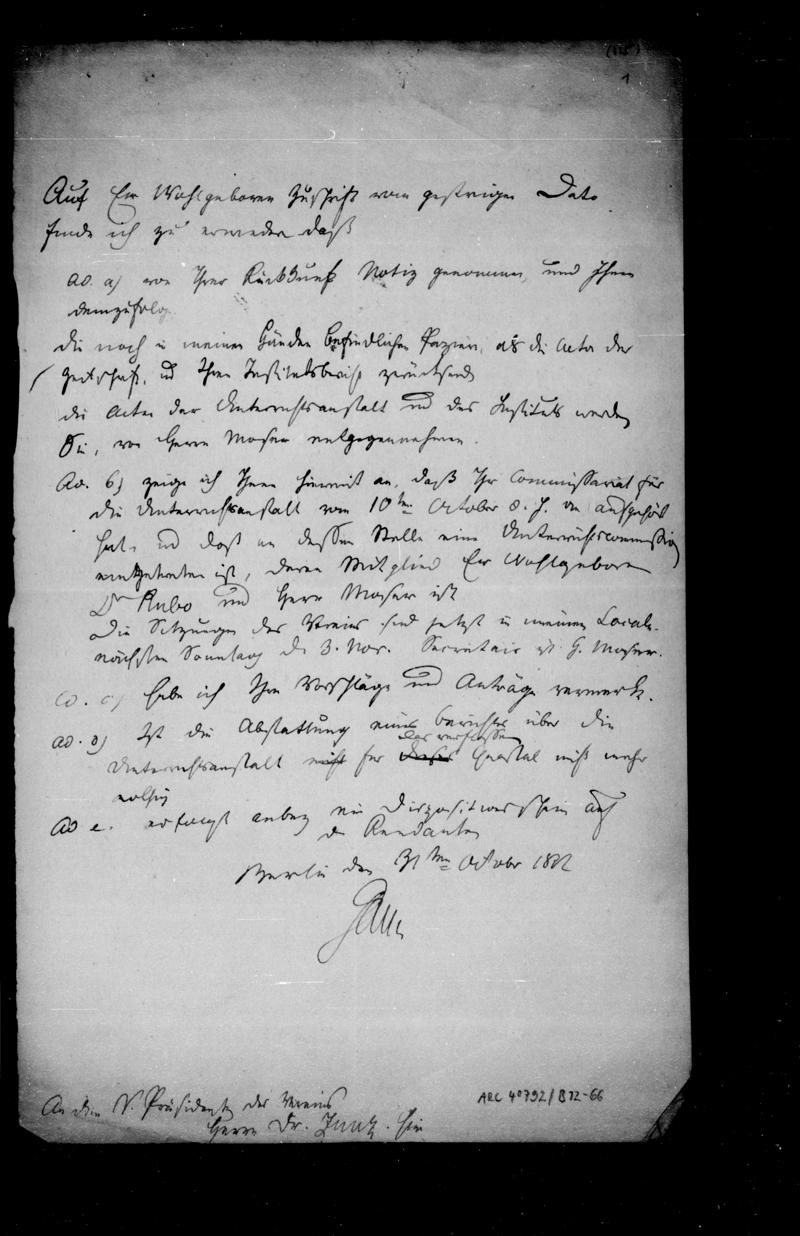 (115)
1
Auf Ew Wohlgeboren Zuschrift vom gestrigen Dato
finde ich zu erwiedern daß
ad. a) von Ihrer Rückkunft Notiz genommen, und Ihnen
demzufolge
die noch in meinen Händen befindlichen Papiere, als die Acta der
Zeitschrift, und Ihren Institutsbericht zurücksende
die Acten der Unterrichtsanstalt und des Instituts werden
Sie, von Herrn Moser entgegennehmen.
Ad. b) zeige ich Ihnen hiermit an, daß Ihr Commissariat für
die Unterrichtsanstalt vom 10ten October d. J. an aufgehört
hat, und daß an dessen Stelle eine Unterrichtscommission
eingetreten ist, deren Mitglied Ew Wohlgeboren
Dr Rubo und Herr Moser ist
Die Sitzungen des Vereins sind jetzt in meinem Locale.
nächsten Sonntag d. 3. Nov. Secretair ist H. Moser.
ad. c) habe ich Ihre Vorschläge und Anträge vermerkt.
ad. d) Ist die Abstattung eines Berichts über die
das verflossene
Unterrichtsanstalt nicht für dieses Quartal nicht mehr
nöthig
Ad e. erfolgt anbey ein Dispositionsschein auf
den Rendanten
Berlin den 31ten October 1822
Gans
An den V. Präsidenten des Vereins
Herrn Dr. Zunz. hier
ARC 4°792/B12-66